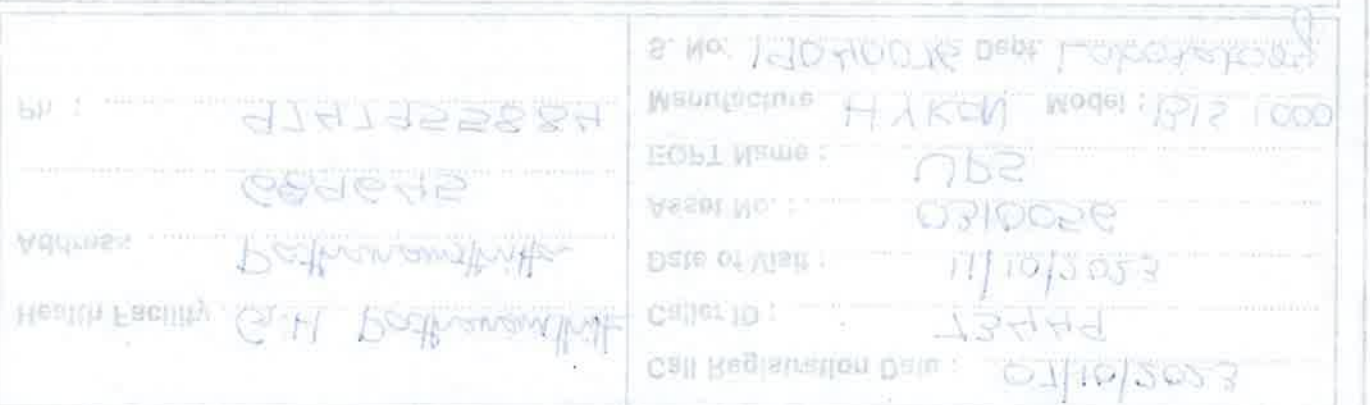 Health Facility G.H Pathanamthitta
Address Pathanamthitta
689645
Ph : 9747955884
Call Registration Date : 07/10/2023
Caller ID : 73449
Date of Visit : 11/10/2023
Asset No. : 0310056
EQPT Name : UPS
Manufacture HYKON Model : BIS 1000
S. No. 19040076 Dept. Laboratory